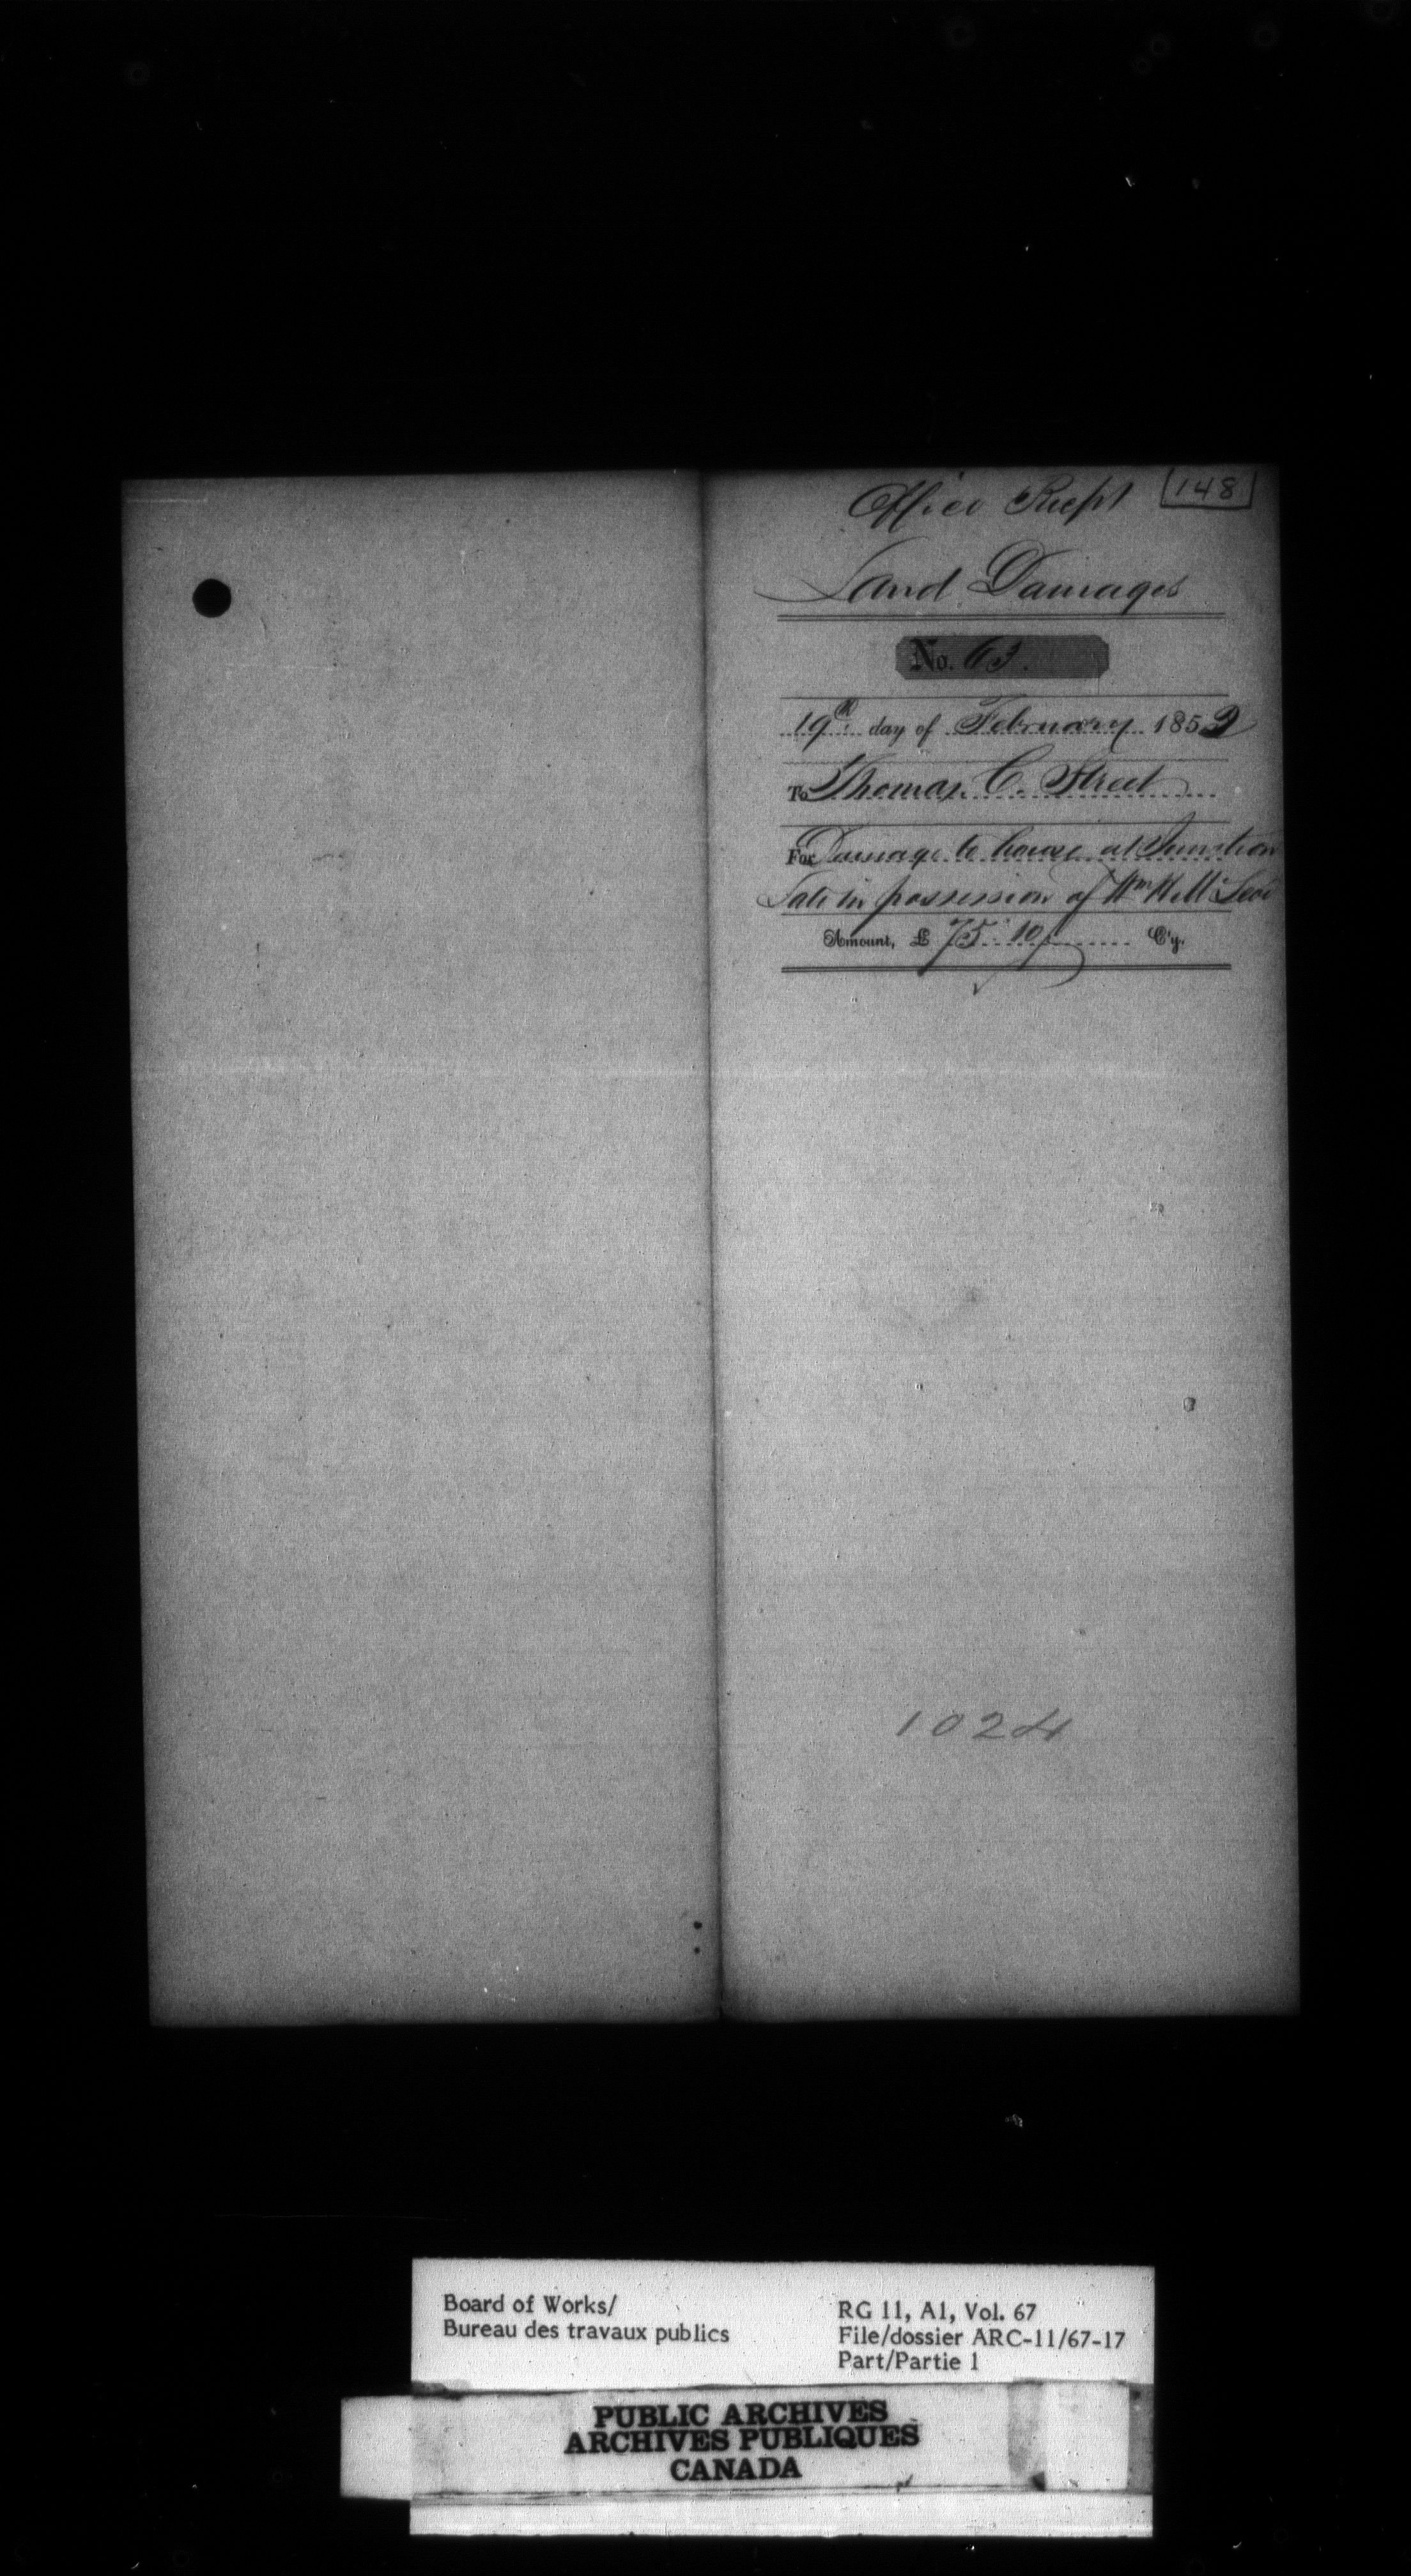 148
Office Recpt
Land Damages
No. 63.
19th day of February 1852
To Thomas C. Street
For Damage to house at Junction
Late in possession of Wm H McLeod
Amount, £ 75. 10/ Cy.
1024
Board of Works/
Bureau des travaux publics
RG 11, A1, Vol. 67
File/dossier ARC-11/67-17
Part/Partie 1
PUBLIC ARCHIVES
ARCHIVES PUBLIQUES
CANADA